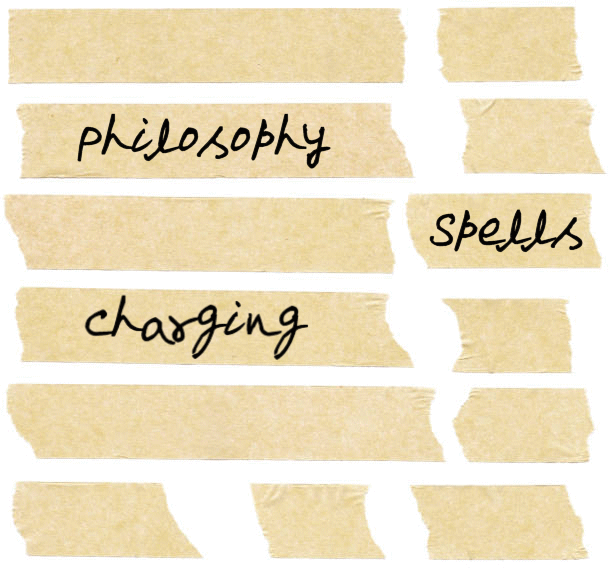 philosophy
spells
charging